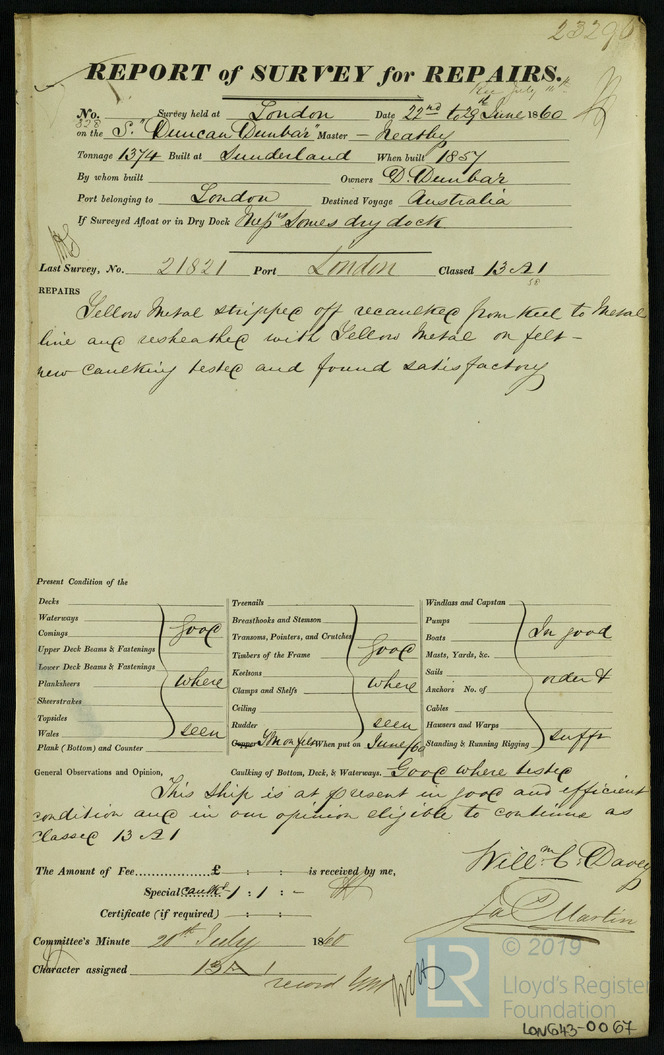 23290
REPORT of SURVEY for REPAIRS.
Rec July 11th
No. 328 Survey held at London Date 22nd to 29th June 1860
on the S. "Duncan Dunbar" Master - Neatby
Tonnage 1374 Built at Sunderland When built 1857
By whom built Owners D. Dunbar
Port belonging to London Destined Voyage Australia
If Surveyed Afloat or in Dry Dock Messrs Somes dry dock
Last Survey, No. 21821 Port London Classed 13 A 1
58
REPAIRS
Yellow Metal stripped off recaulked from Keel to Metal
line and resheathed with Yellow Metal on felt -
new caulking tested and found satisfactory
Present Condition of the
Decks
Waterways
Comings
Upper Deck Beams & Fastenings
Lower Deck Beams & Fastenings
Planksheers
Sheerstrakes
Topsides
Wales
Plank (Bottom) and Counter
good
where
seen
Treenails
Breasthooks and Stemson
Transoms, Pointers, and Crutches
Timbers of the Frame
Keelsons
Clamps and Shelfs
Ceiling
Rudder
good
where
seen
Copper YM on felt When put on June/60
Windlass and Capstan
Pumps
Boats
Masts, Yards, &c.
Sails
Anchors No. of
Cables
Hawsers and Warps
Standing & Running Rigging
In good
order &
sufft
General Observations and Opinion, Caulking of Bottom, Deck, & Waterways. Good where tested
This ship is at present in good and efficient
condition and in our opinion eligible to continue as
classed 13 A 1
Willm. C. Davey
Jas Martin
The Amount of Fee £ : : is received by me,
Special caulkg 1 : 1 : -
Certificate (if required) : :
Committee's Minute 20th July 1860
Character assigned 13 A 1
record YM
© 2019
LR
Lloyd's Register
Foundation
LON643-0067